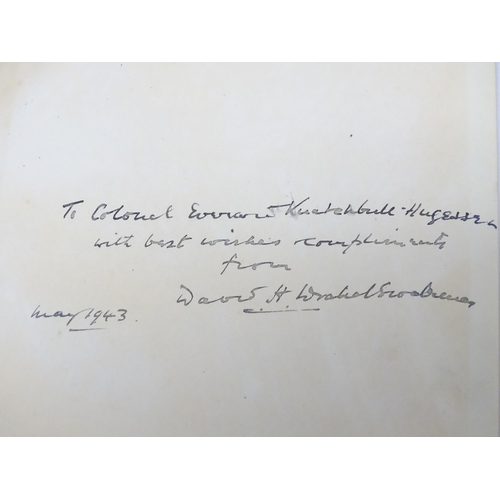 To Colonel Everard Knatchbull-Hugessen
with best wishes compliments
from
David H.
May 1943.